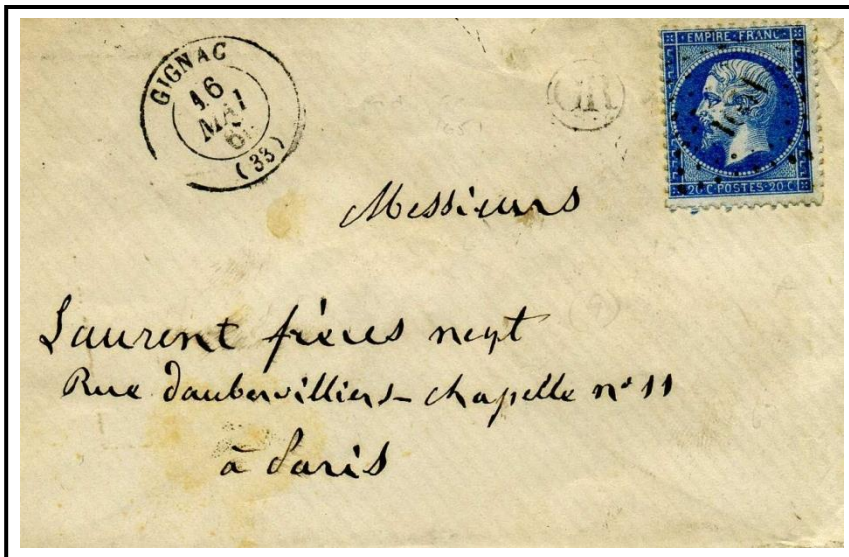 GIGNAC
16
MAI
(33)
EMPIRE FRANC
1651
20 C POSTES 20 C
Messieurs
Laurent frères negt
Rue daubervilliers chapelle n° 11
à Paris